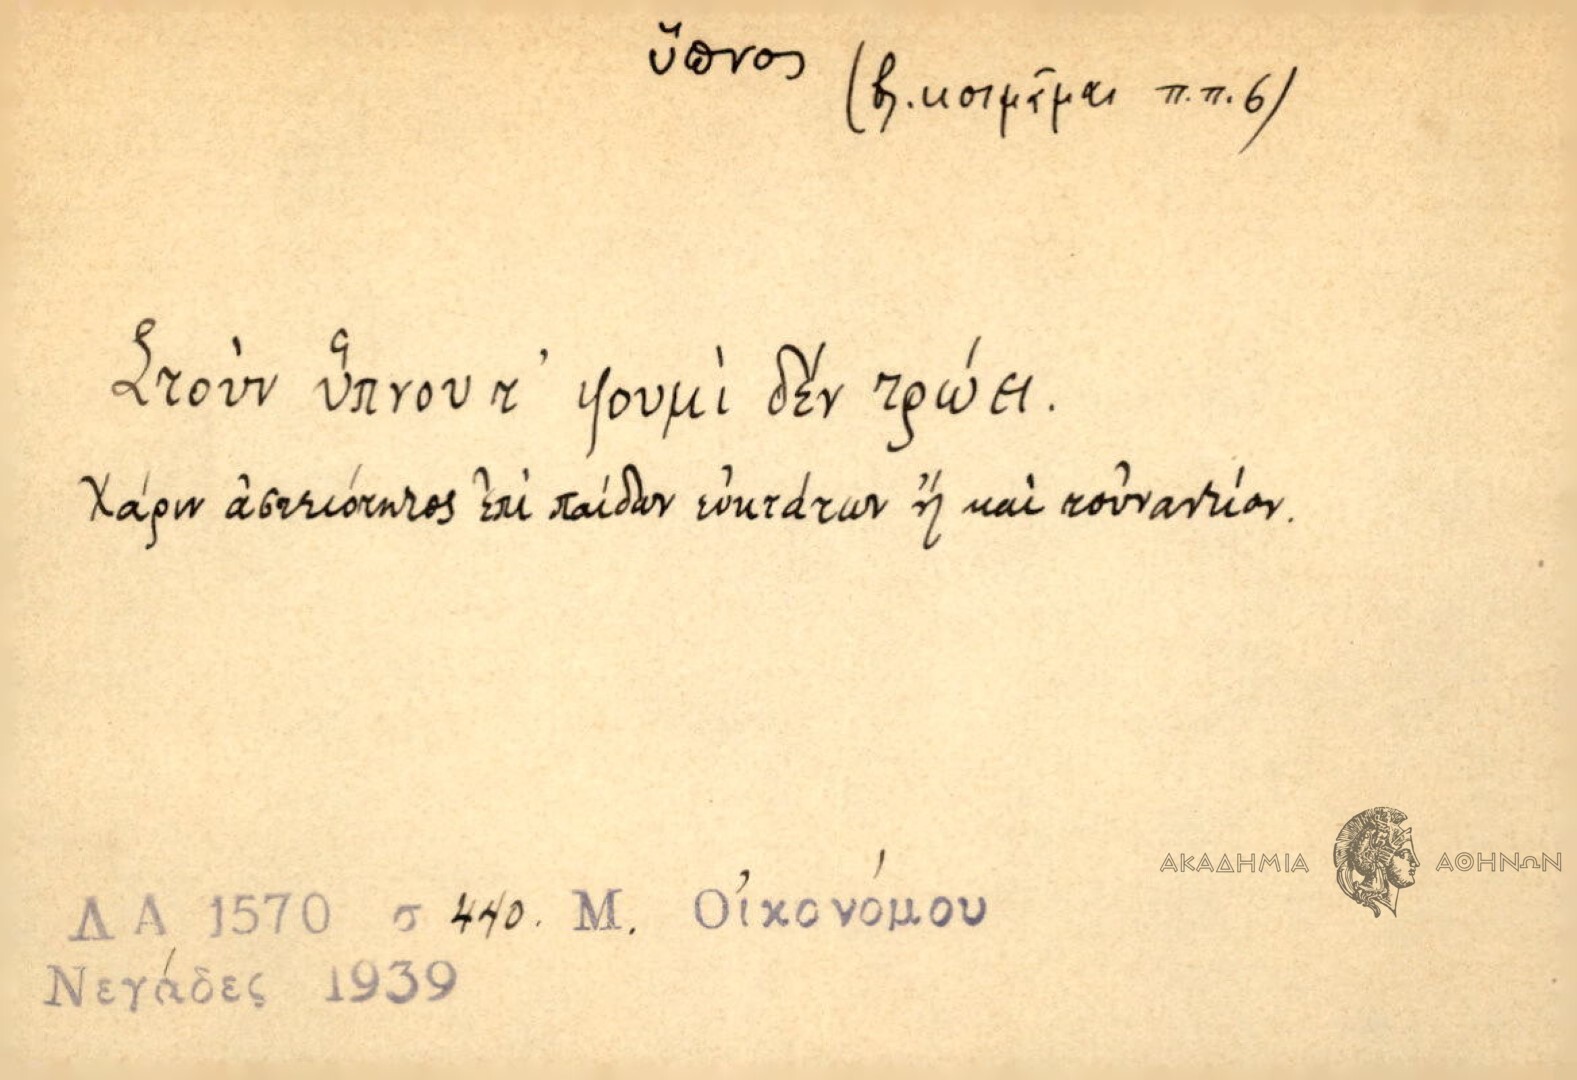 ὕπνος
(βλ. κοιμᾶμαι π.π. 6)
Στοὺν ὕπνου τ' ψουμὶ δὲν τρώει.
Χάριν ἀστειότητος ἐπὶ παίδων εὐκτάτων ἢ καὶ τοὐναντίον.
ΑΚΑΔΗΜΙΑ ΑΘΗΝΩΝ
ΛΑ 1570 σ 440. Μ. Οἰκονόμου
Νεγάδες 1939